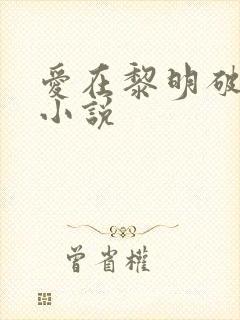 愛在黎明破
小說
曾省權